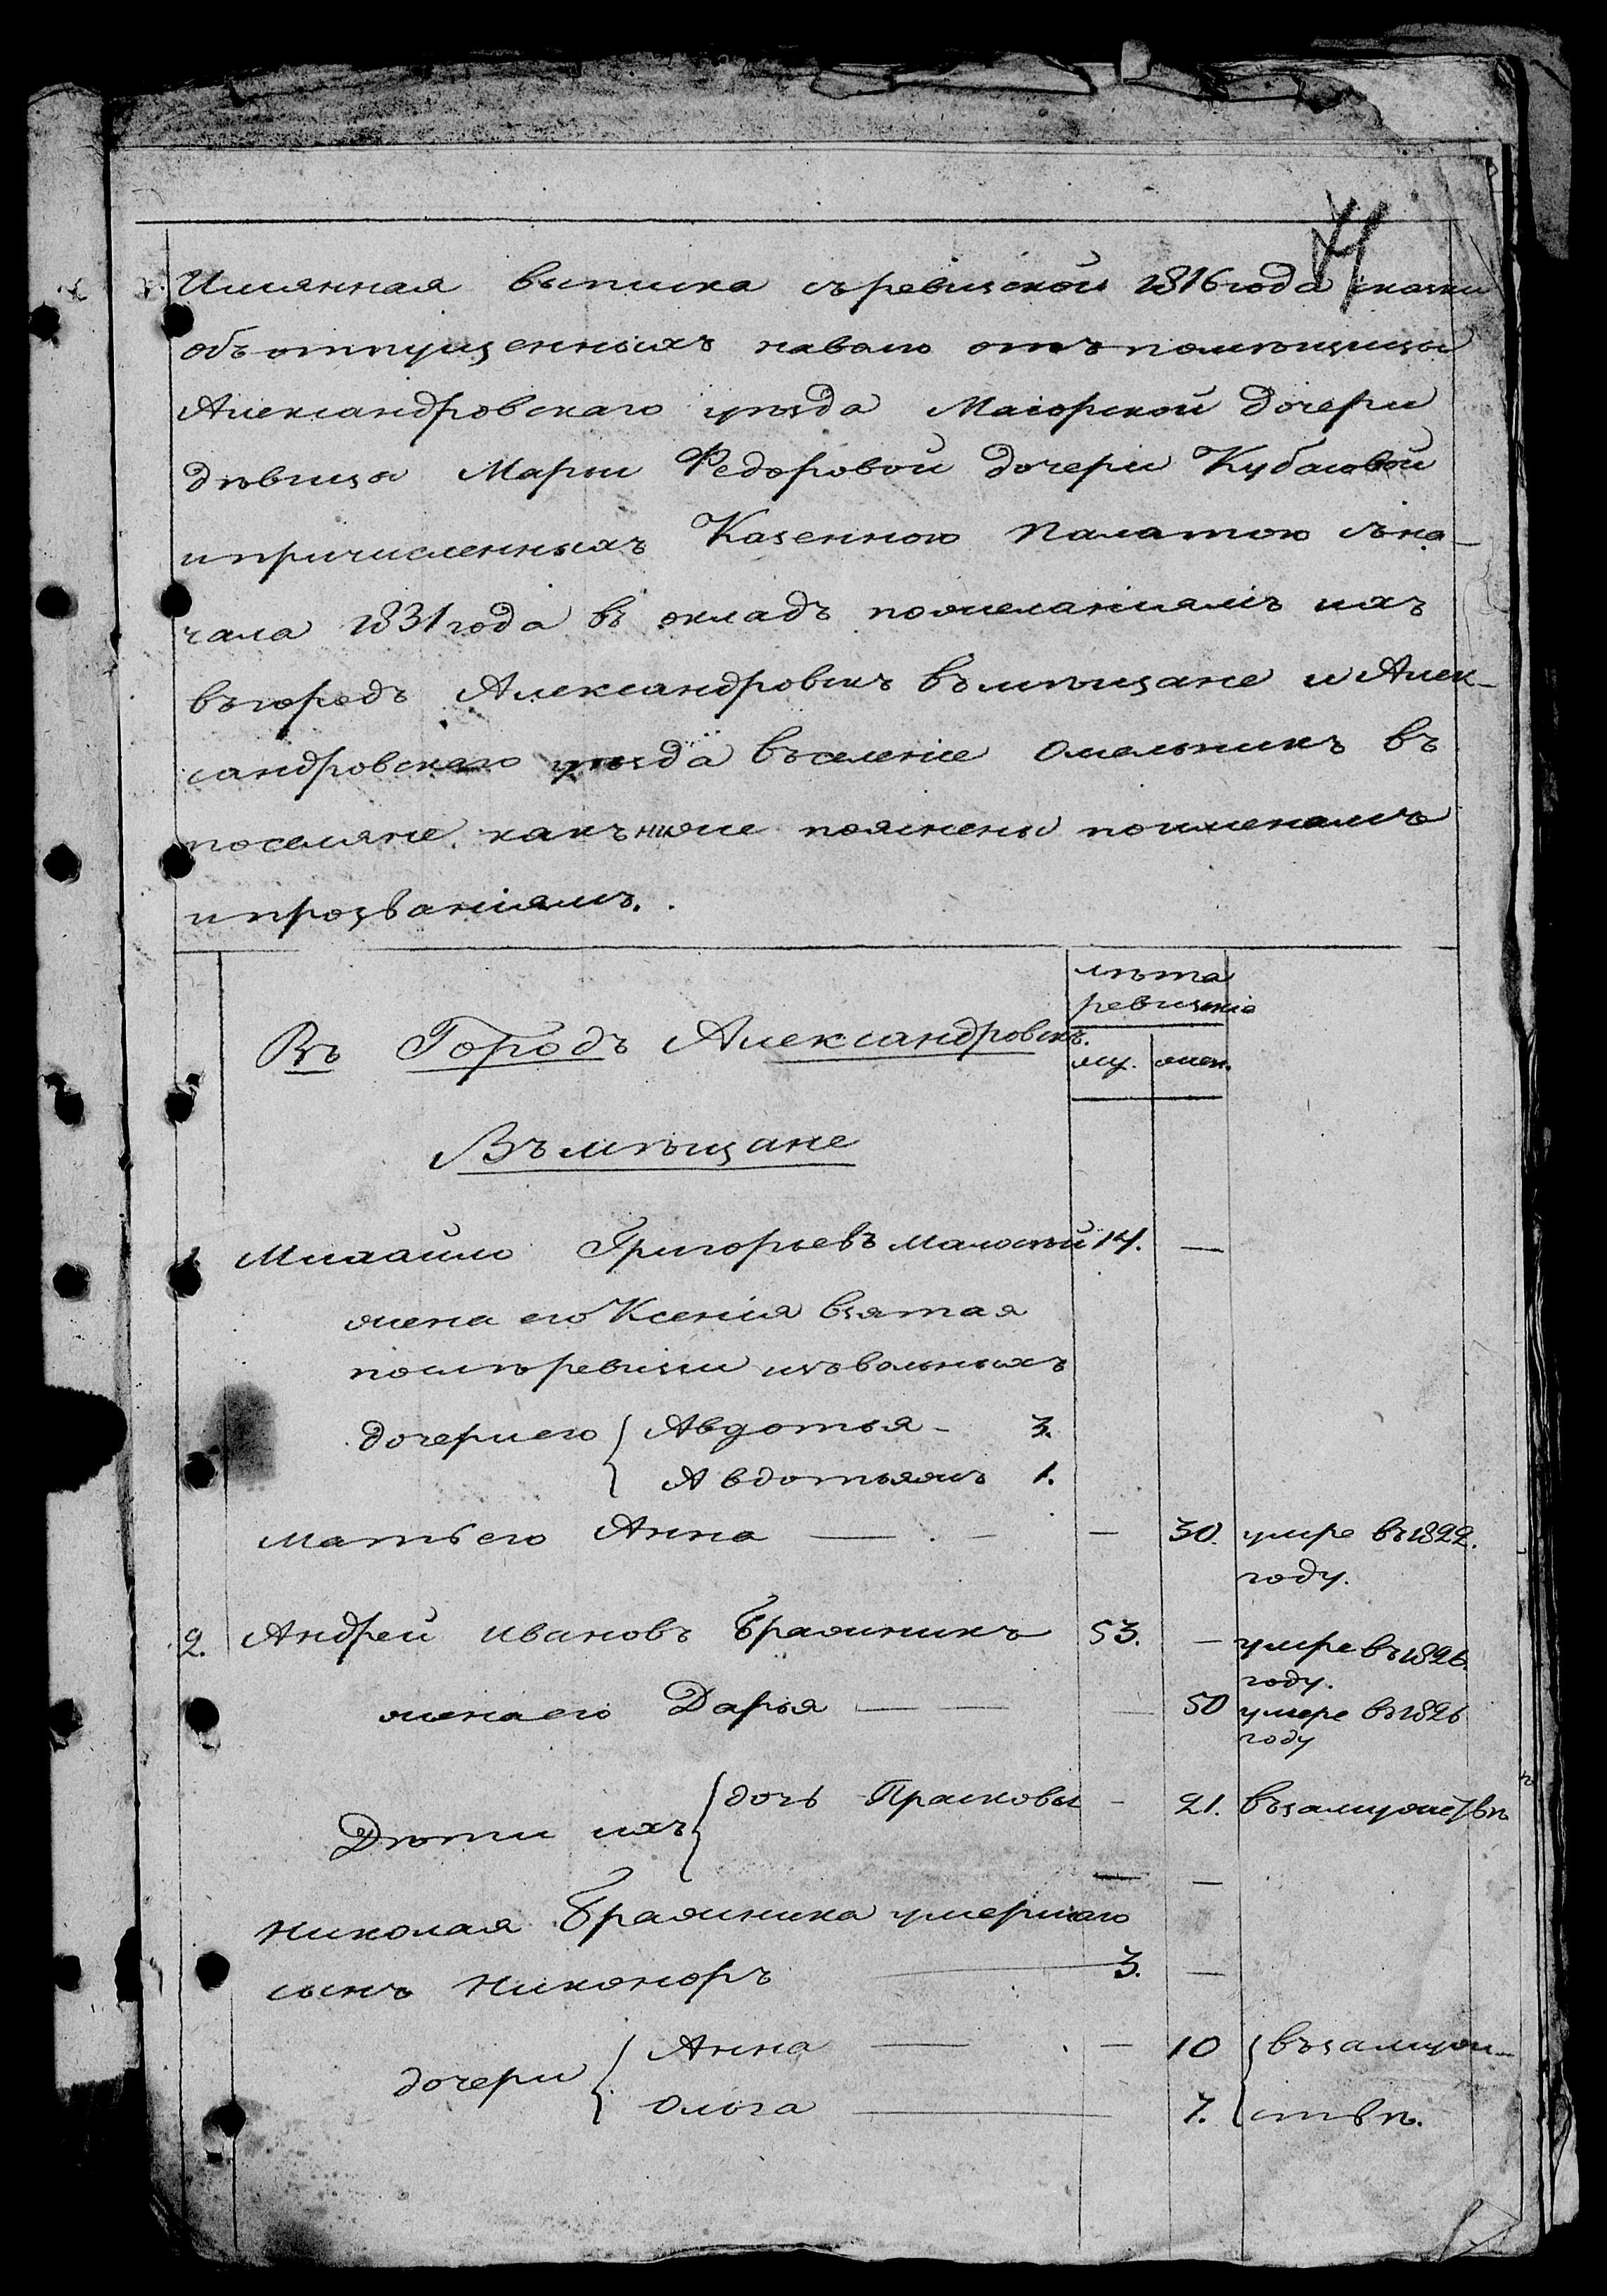 Имянная выписка съ ревизской 1816 года сказки
объ отпущенныхъ на волю отъ помѣщицы
Александровскаго уѣзда Маіорской дочери
дѣвицы Марьи Федоровой дочери Кубасовой
и причисленныхъ Казенною Палатою съ на-
чала 1831 года въ окладъ по желаніямъ ихъ
въ городъ Александровскъ въ мѣщане и Алек-
сандровскаго уѣзда въ селеніе Омельникъ въ
поселяне какъ ниже пояснены по именамъ
и прозваніямъ.
лѣта
ревизскіе
Въ Городъ Александровскъ.
му. жен.
Въ мѣщане
1 Михайло Григорьевъ 14. —
жена его Ксенія взятая
послѣ ревизіи изъ вольныхъ
дочери его { Авдотья - 3.
Авдотья жъ 1.
Мать его Анна — - — 30. умре въ 1822.
году.
2. Андрей Ивановъ Бражникъ 53. — умре въ 1826.
году.
жена его Дарья — — — 50 умре въ 1826
году
Дѣти ихъ { дочь Прасковья - 21. въ замужествѣ
— —
Николая Бражника умершаго
сынъ Никоноръ — 3. —
дочери { Анна — — 10 { въ замуж-
Ольга — 7. { ствѣ.